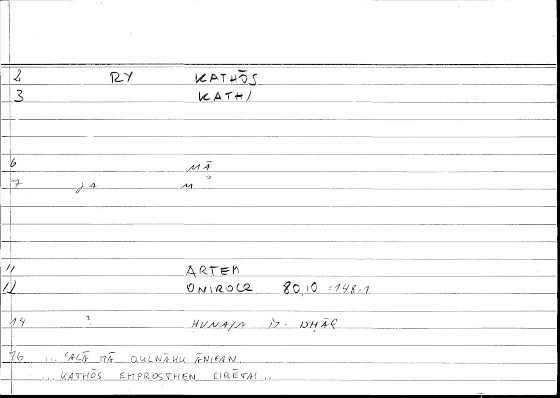 2 RY KATHŌS
3 KATH/
6 MĀ
7 M
11 ARTEM
12 ONIROCR 80,10 = 148.1
14 ? HUNAIN
16 ... ʿALĀ MĀ QULNĀHU ĀNIFAN.
... KATHŌS EMPROSTHEN EIRĒTAI ..